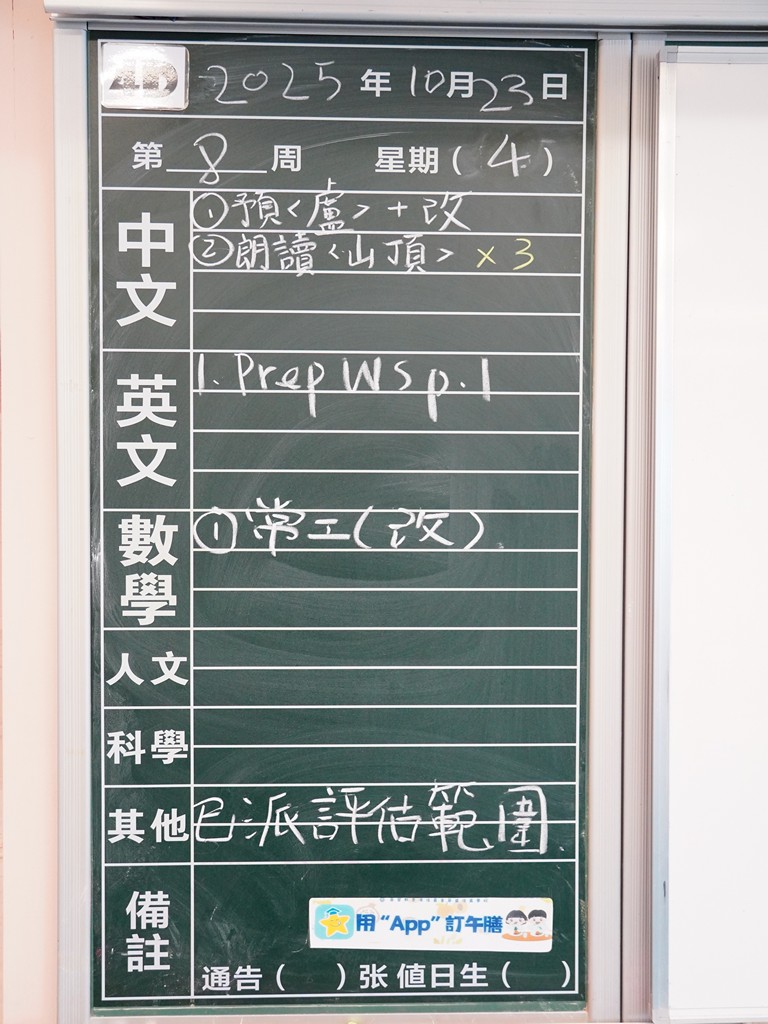 4D
2025年10月23日
第8周 星期(4)
中文
①預<盧>+改
②朗讀<山頂>×3
英文
1. Prep WS p.1
數學
①常工(改)
人文
科學
其他
已派評估範圍
備註
用“App”訂午膳
通告( )张 值日生( )